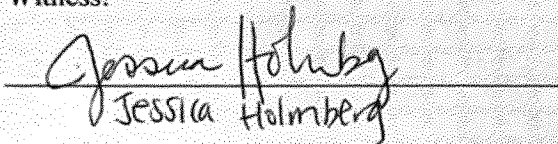 Witness:
Jessica Holmberg
Jessica Holmberg